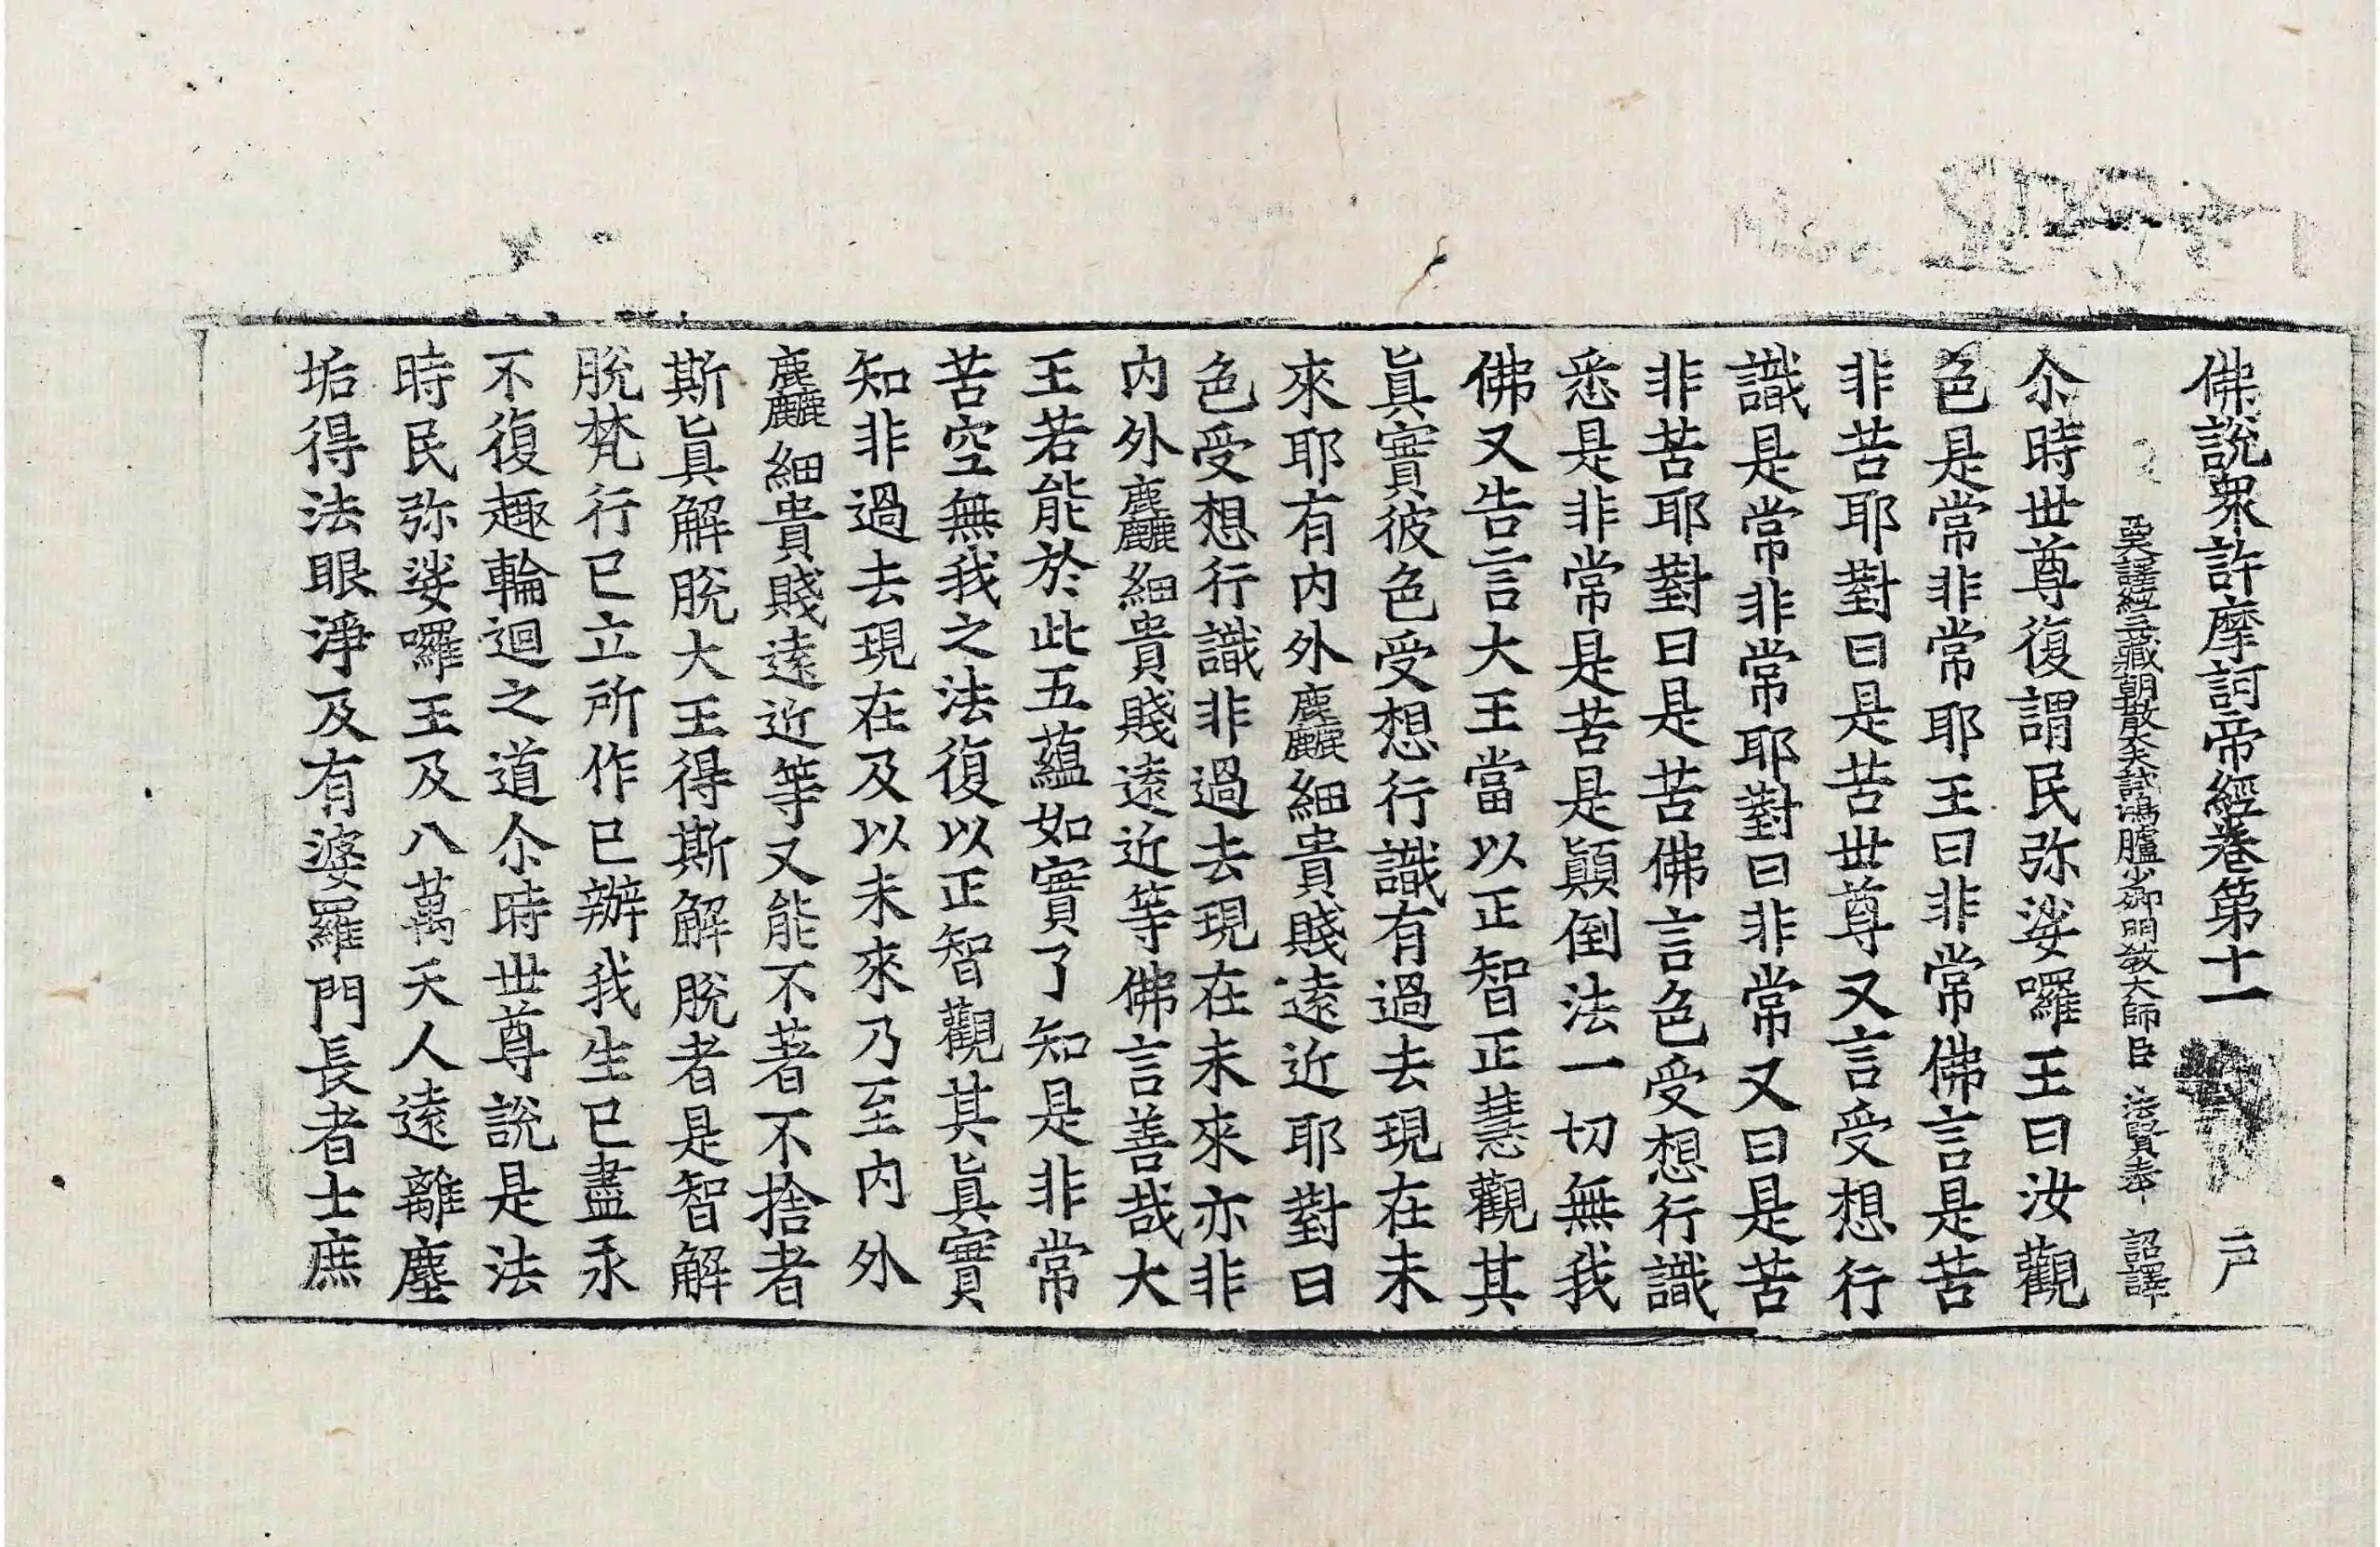 佛說衆許摩訶帝經卷第十一 戸
西天譯經三藏朝散大夫試鴻臚少卿明教大師臣法賢奉 詔譯
尒時世尊復謂民弥娑囉王曰汝觀
色是常非常耶王曰非常佛言是苦
非苦耶對曰是苦世尊又言受想行
識是常非常耶對曰非常又曰是苦
非苦耶對曰是苦佛言色受想行識
悉是非常是苦是顛倒法一切無我
佛又告言大王當以正智正慧觀其
眞實彼色受想行識有過去現在未
來耶有内外麤細貴賤遠近耶對曰
色受想行識非過去現在未來亦非
内外麤細貴賤遠近等佛言善哉大
王若能於此五蘊如實了知是非常
苦空無我之法復以正智觀其眞實
知非過去現在及以未來乃至内外
麤細貴賤遠近等又能不著不捨者
斯眞解脫大王得斯解脫者是智解
脫梵行已立所作已辦我生已盡永
不復趣輪迴之道尒時世尊說是法
時民弥娑囉王及八萬天人遠離塵
垢得法眼淨及有婆羅門長者士庶